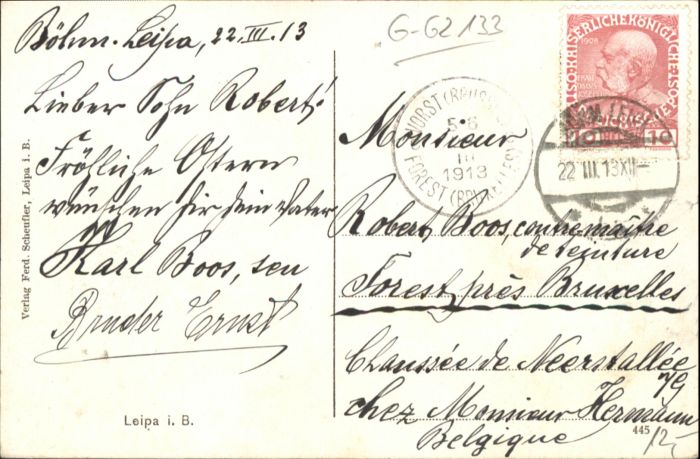 Böhm. Leipa, 22. III. 13
G-GZ 133
Lieber Sohn Robert!
Fröhliche Ostern
wünschen dir dein Vater
Karl Boos, sen
Bruder Ernst
Verlag Ferd. Scheufler, Leipa i. B.
Leipa i. B.
VORST (BRUSSEL)
III
1913
FOREST (BRUXELLES)
1908
10 10
22 III. 13 XII
Monsieur
Robert Boos, contremaître
de teinture
Forest près Bruxelles
Chaussée de Neerstallée
chez Monsieur Hermann
Belgique
445
12,-